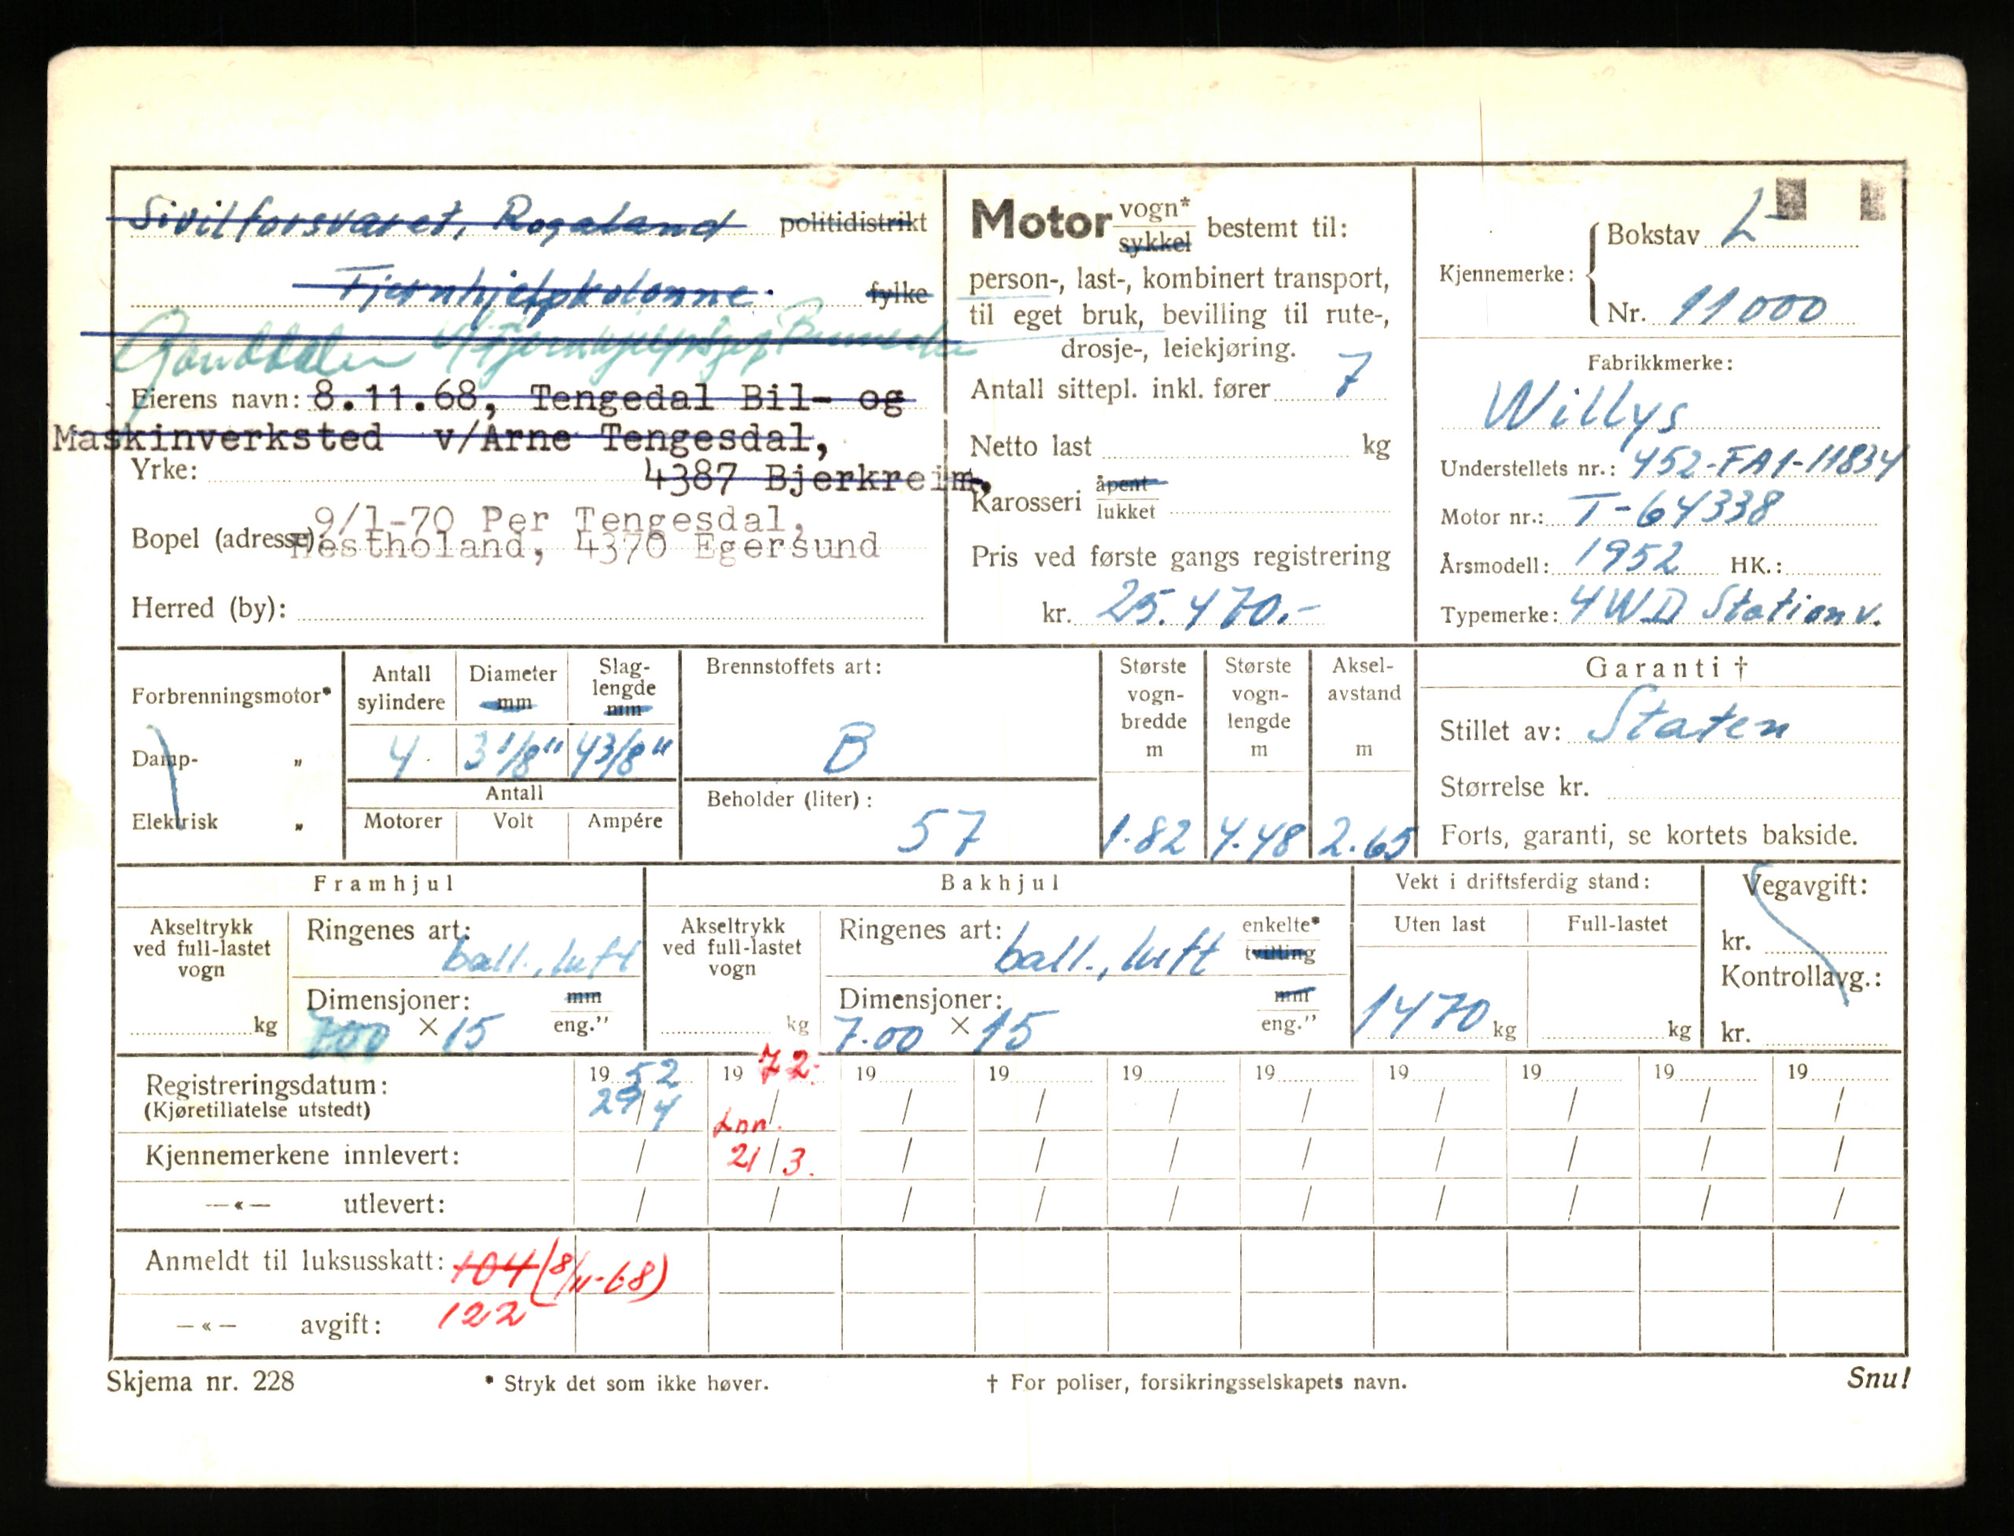 Sivilforsvaret, Rogaland politidistrikt
Fjernhjelpkolonne. fylke
Ganddalen
Eierens navn: 8.11.68, Tengedal Bil- og
Maskinverksted v/Arne Tengesdal,
Yrke: 4387 Bjerkreim.
9/1-70 Per Tengesdal,
Bopel (adresse): Hestholand, 4370 Egersund
Herred (by):
Motor vogn* sykkel bestemt til:
person-, last-, kombinert transport,
til eget bruk, bevilling til rute-,
drosje-, leiekjøring.
Antall sittepl. inkl. fører 7
Netto last kg
Karosseri åpent lukket
Pris ved første gangs registrering
kr. 25.470.-
Kjennemerke: Bokstav L
Nr. 11000
Fabrikkmerke:
Willys
Understellets nr.: 452-FA1-11834
Motor nr.: T-64338
Årsmodell: 1952 HK.:
Typemerke: 4WD Stationv.
Forbrenningsmotor*
Damp- „
Elektrisk „
Antall sylindere
4
Diameter mm
3 1/8"
Slaglengde mm
4 3/8"
Antall
Motorer Volt Ampére
Brennstoffets art:
B
Beholder (liter):
57
Største vognbredde m
1.82
Største vognlengde m
4.48
Akselavstand m
2.65
Garanti †
Stillet av: Staten
Størrelse kr.
Forts, garanti, se kortets bakside.
Framhjul
Akseltrykk ved full-lastet vogn
kg
Ringenes art:
ball., luft
Dimensjoner: mm
700 × 15 eng."
Bakhjul
Akseltrykk ved full-lastet vogn
kg
Ringenes art: enkelte*
ball., luft tvilling
Dimensjoner: mm
7.00 × 15 eng."
Vekt i driftsferdig stand:
Uten last Full-lastet
1470 kg kg
Vegavgift:
kr.
Kontrollavg.:
kr.
Registreringsdatum: 19 52 19 72. 19 19 19 19 19 19 19 19
(Kjøretillatelse utstedt) 29/4 / / / / / / / / /
Inn.
Kjennemerkene innlevert: / 21/3. / / / / / / / /
—«— utlevert: / / / / / / / / / /
Anmeldt til luksusskatt: 104 (8/11-68)
—«— avgift: 122
Skjema nr. 228 * Stryk det som ikke høver. † For poliser, forsikringsselskapets navn. Snu!